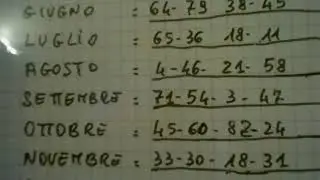 GIUGNO : 64-79 38-45
LUGLIO : 65-36 18-11
AGOSTO : 4-46-21-58
SETTEMBRE : 71-54-3-47
OTTOBRE : 45-60-82-24
NOVEMBRE : 33-30-18-31